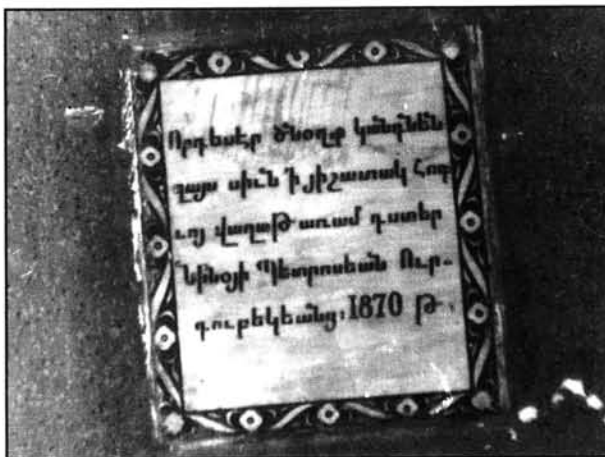 Որդեսէր ծնօղք կանգնեն
զայս սիւն ՚ի յիշատակ հոգ-
ւոյ վաղաթառամ դստեր
Նինօյի Պետրոսեան Ուր-
դուբեկեանց։ 1870 թ.